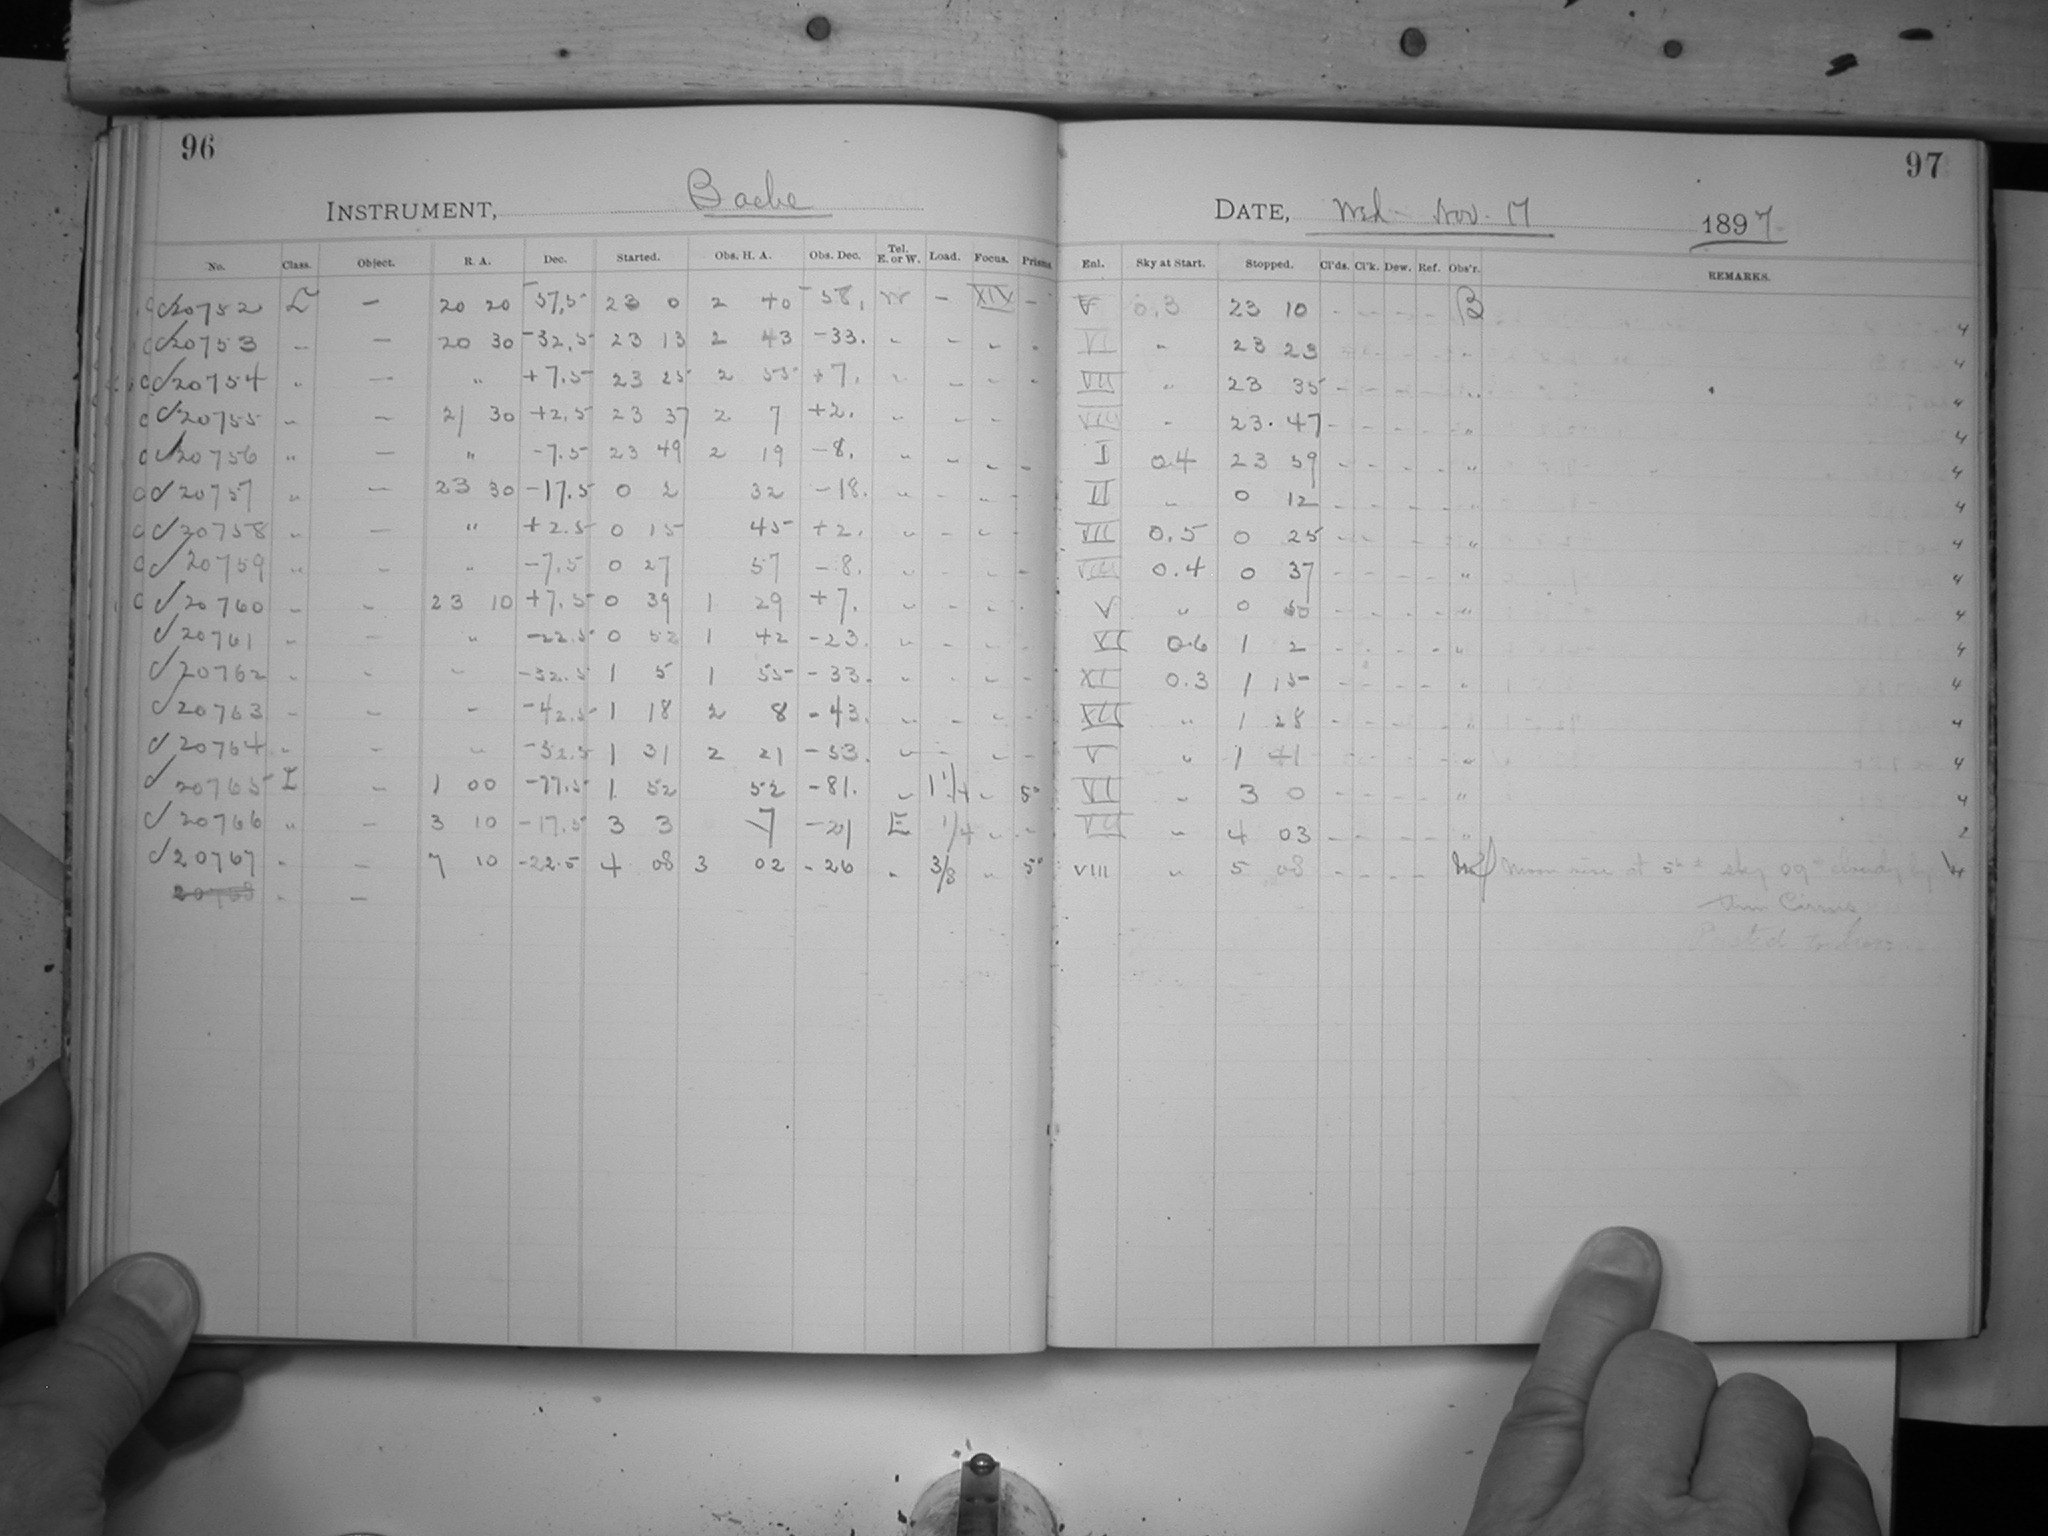 96
97
INSTRUMENT, Bache
DATE, Wed - Nov. 17 1897
No. Class. Object. R. A. Dec. Started. Obs. H. A. Obs. Dec. Tel. E. or W. Load. Focus. Prisms. Enl. Sky at Start. Stopped. Cl'ds. Cl'k. Dew. Ref. Obs'r. REMARKS.
c √20752 L — 20 20 -57.5 23 0 2 40 -58. W - XIV - V 0.3 23 10 - - - - B 4
c √20753 " — 20 30 -32.5 23 13 2 43 -33. " - " " VI " 23 23 - - - - " 4
c √20754 " — " +7.5 23 25 2 55 +7. " - - " VII " 23 35 - - - - " 4
c √20755 " — 21 30 +2.5 23 37 2 7 +2. " - - VIII " 23. 47 - - - - " 4
c √20756 " — " -7.5 23 49 2 19 -8. " - " - I 0.4 23 59 - - - - " 4
c √20757 " — 23 30 -17.5 0 2 32 -18. " - " - II " 0 12 - - - - " 4
c √20758 " — " +2.5 0 15 45 +2. " - " - VII 0.5 0 25 - - - - " 4
c √20759 " - " -7.5 0 27 57 -8. " - " - VIII 0.4 0 37 - - - - " 4
c √20760 " - 23 10 +7.5 0 39 1 29 +7. " - " - V " 0 50 - - - - " 4
√20761 " - " -22.5 0 52 1 42 -23. " - " - VI 0.6 1 2 - - - - " 4
√20762 " - " -32.5 1 5 1 55 -33. " - " - XI 0.3 1 15 - - - - " 4
√20763 " - " -42.5 1 18 2 8 -43. " - " - XII " 1 28 - - - - " 4
√20764 " - " -52.5 1 31 2 21 -53. " - " - V " 1 41 - - - - " 4
√20765 I - 1 00 -77.5 1 52 52 -81. " 1 1/4 " 5" VI " 3 0 - - - - " 4
√20766 " - 3 10 -17.5 3 3 7 -21 E 1/4 " " VII " 4 03 - - - - " 2
√20767 " - 7 10 -22.5 4 08 3 02 -26 " 3/8 " 5" VIII " 5 08 - - - - Moon rise at 5h ± sky cloudy 4
20768 " — thin Cirrus